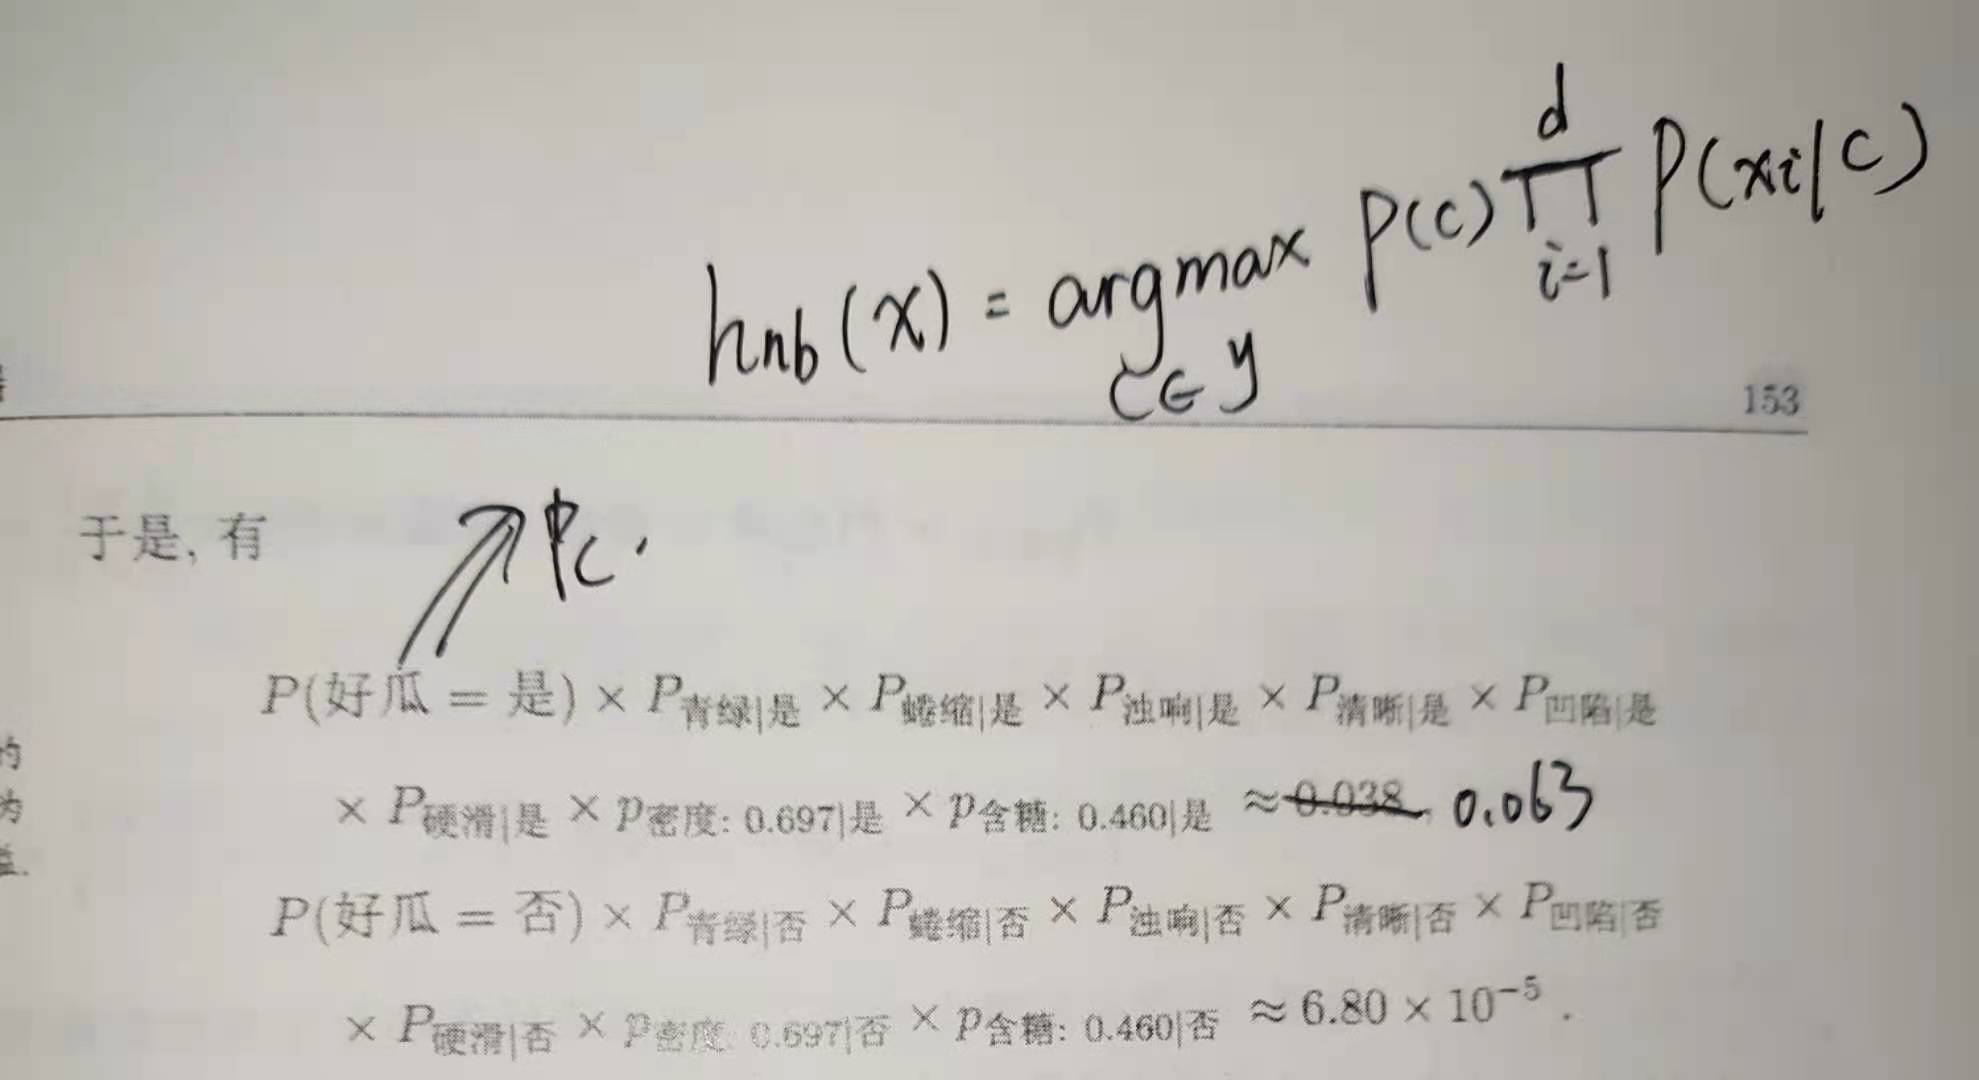 d
hnb(x) = argmax P(c) ∏ P(xi|c)
c∈y i=1
153
于是, 有
Pc.
P(好瓜 = 是) × P青绿|是 × P蜷缩|是 × P浊响|是 × P清晰|是 × P凹陷|是
的
× P硬滑|是 × p密度: 0.697|是 × p含糖: 0.460|是 ≈ 0.038 0.063
为
P(好瓜 = 否) × P青绿|否 × P蜷缩|否 × P浊响|否 × P清晰|否 × P凹陷|否
× P硬滑|否 × p密度: 0.697|否 × p含糖: 0.460|否 ≈ 6.80 × 10⁻⁵ .